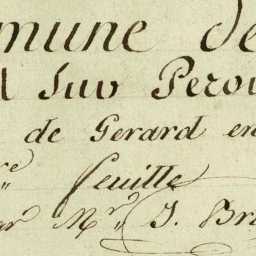 mune de
l Sur Pero
de Gerard en
re feuille
Mr. J. Br